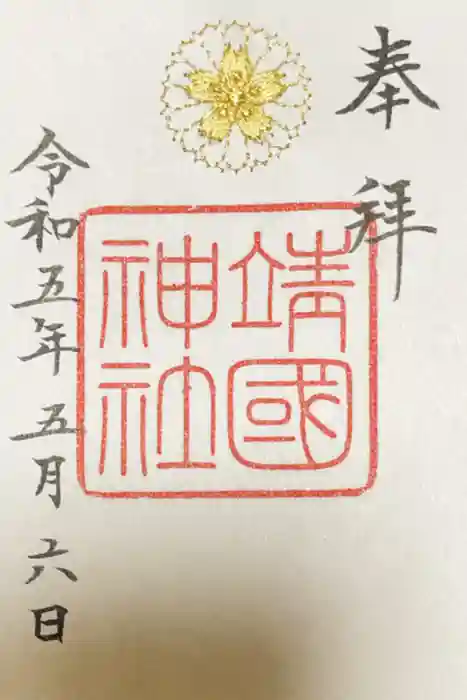 奉拝
靖國
神社
令和五年五月六日